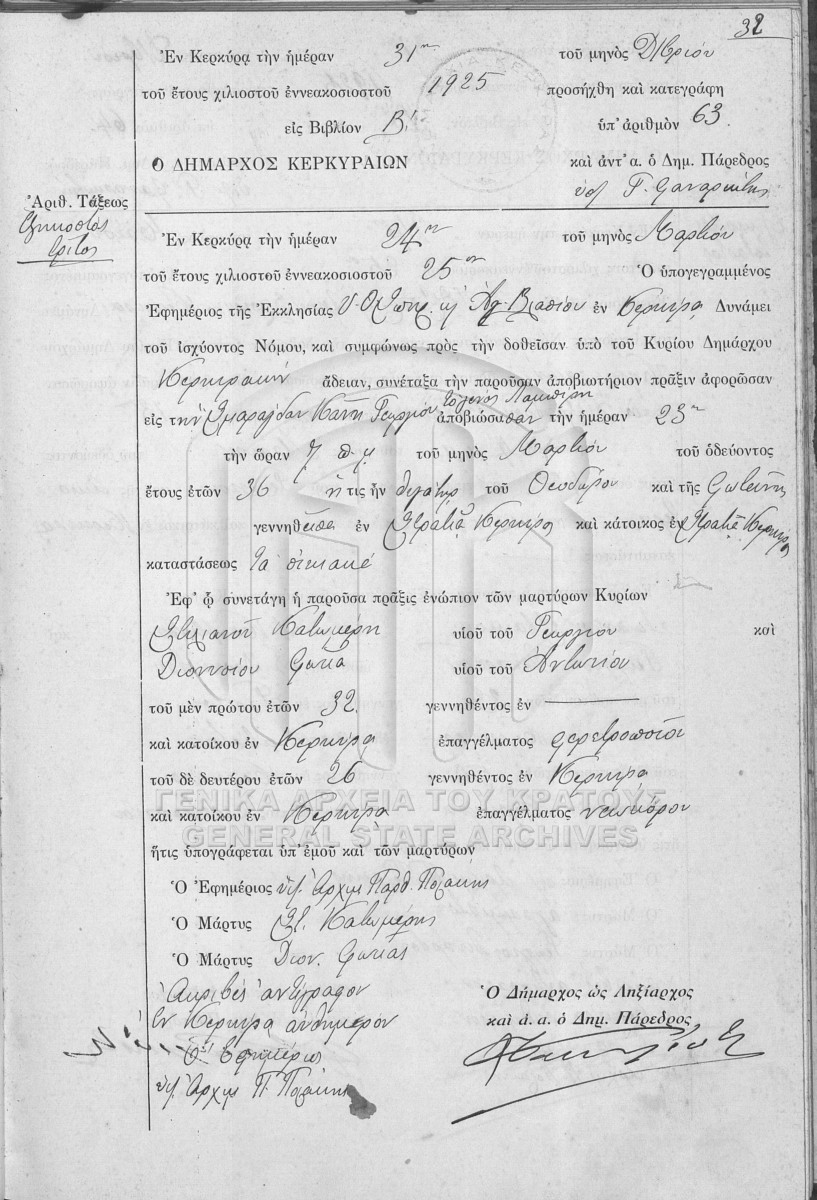 32
Ἐν Κερκύρᾳ τὴν ἡμέραν 31ην τοῦ μηνὸς Δ/βρίου
τοῦ ἔτους χιλιοστοῦ ἐννεακοσιοστοῦ 1925 προσήχθη καὶ κατεγράφη
εἰς Βιβλίον Β! ὑπ' ἀριθμὸν 63.
Ο ΔΗΜΑΡΧΟΣ ΚΕΡΚΥΡΑΙΩΝ καὶ ἀντ' α. ὁ Δημ. Πάρεδρος
Ἀριθ. Τάξεως
εἰκοστὸς
τρίτος
Ἐν Κερκύρᾳ τὴν ἡμέραν 24ην τοῦ μηνὸς Μαρτίου
τοῦ ἔτους χιλιοστοῦ ἐννεακοσιοστοῦ 25ου Ὁ ὑπογεγραμμένος
Ἐφημέριος τῆς Ἐκκλησίας Ἁγ. Βλασίου ἐν Κερκύρᾳ Δυνάμει
τοῦ ἰσχύοντος Νόμου, καὶ συμφώνως πρὸς τὴν δοθεῖσαν ὑπὸ τοῦ Κυρίου Δημάρχου
Κερκυραίων ἄδειαν, συνέταξα τὴν παροῦσαν ἀποβιωτήριον πρᾶξιν ἀφορῶσαν
εἰς τὴν Σμαράγδαν Γεωργίου τὸ γένος ἀποβιώσασαν τὴν ἡμέραν 23ην
τὴν ὥραν 7 π.μ. τοῦ μηνὸς Μαρτίου τοῦ ὁδεύοντος
ἔτους ἐτῶν 36 ἥτις ἦν θυγάτηρ τοῦ Θεοδώρου καὶ τῆς Φωτεινῆς
γεννηθεῖσα ἐν Στρατιᾷ Κερκύρᾳ καὶ κάτοικος ἐν Στρατιᾷ Κερκύρᾳ
καταστάσεως
Ἐφ' ᾧ συνετάγη ἡ παροῦσα πρᾶξις ἐνώπιον τῶν μαρτύρων Κυρίων
Στυλιανοῦ Κατωμέρη υἱοῦ τοῦ Γεωργίου καὶ
Διονυσίου Φωκᾶ υἱοῦ τοῦ Ἀντωνίου
τοῦ μὲν πρώτου ἐτῶν 32 γεννηθέντος ἐν
καὶ κατοίκου ἐν Κερκύρᾳ ἐπαγγέλματος φερετροποιοῦ
τοῦ δὲ δευτέρου ἐτῶν 26 γεννηθέντος ἐν Κερκύρᾳ
ΓΕΝΙΚΑ ΑΡΧΕΙΑ ΤΟΥ ΚΡΑΤΟΥΣ
καὶ κατοίκου ἐν Κερκύρᾳ ἐπαγγέλματος νεωκόρου
GENERAL STATE ARCHIVES
ἥτις ὑπογράφεται ὑπ' ἐμοῦ καὶ τῶν μαρτύρων
Ὁ Ἐφημέριος Ἀρχιμ. Παρθ. Πολάκης
Ὁ Μάρτυς Στ. Κατωμέρης
Ὁ Μάρτυς Διον. Φωκᾶς
Ἀκριβὲς ἀντίγραφον
Ἐν Κερκύρᾳ αὐθημερόν
Ὁ Ἐφημέριος
Ἀρχιμ. Π. Πολάκης
Ὁ Δήμαρχος ὡς Ληξίαρχος
καὶ ἀ. α. ὁ Δημ. Πάρεδρος